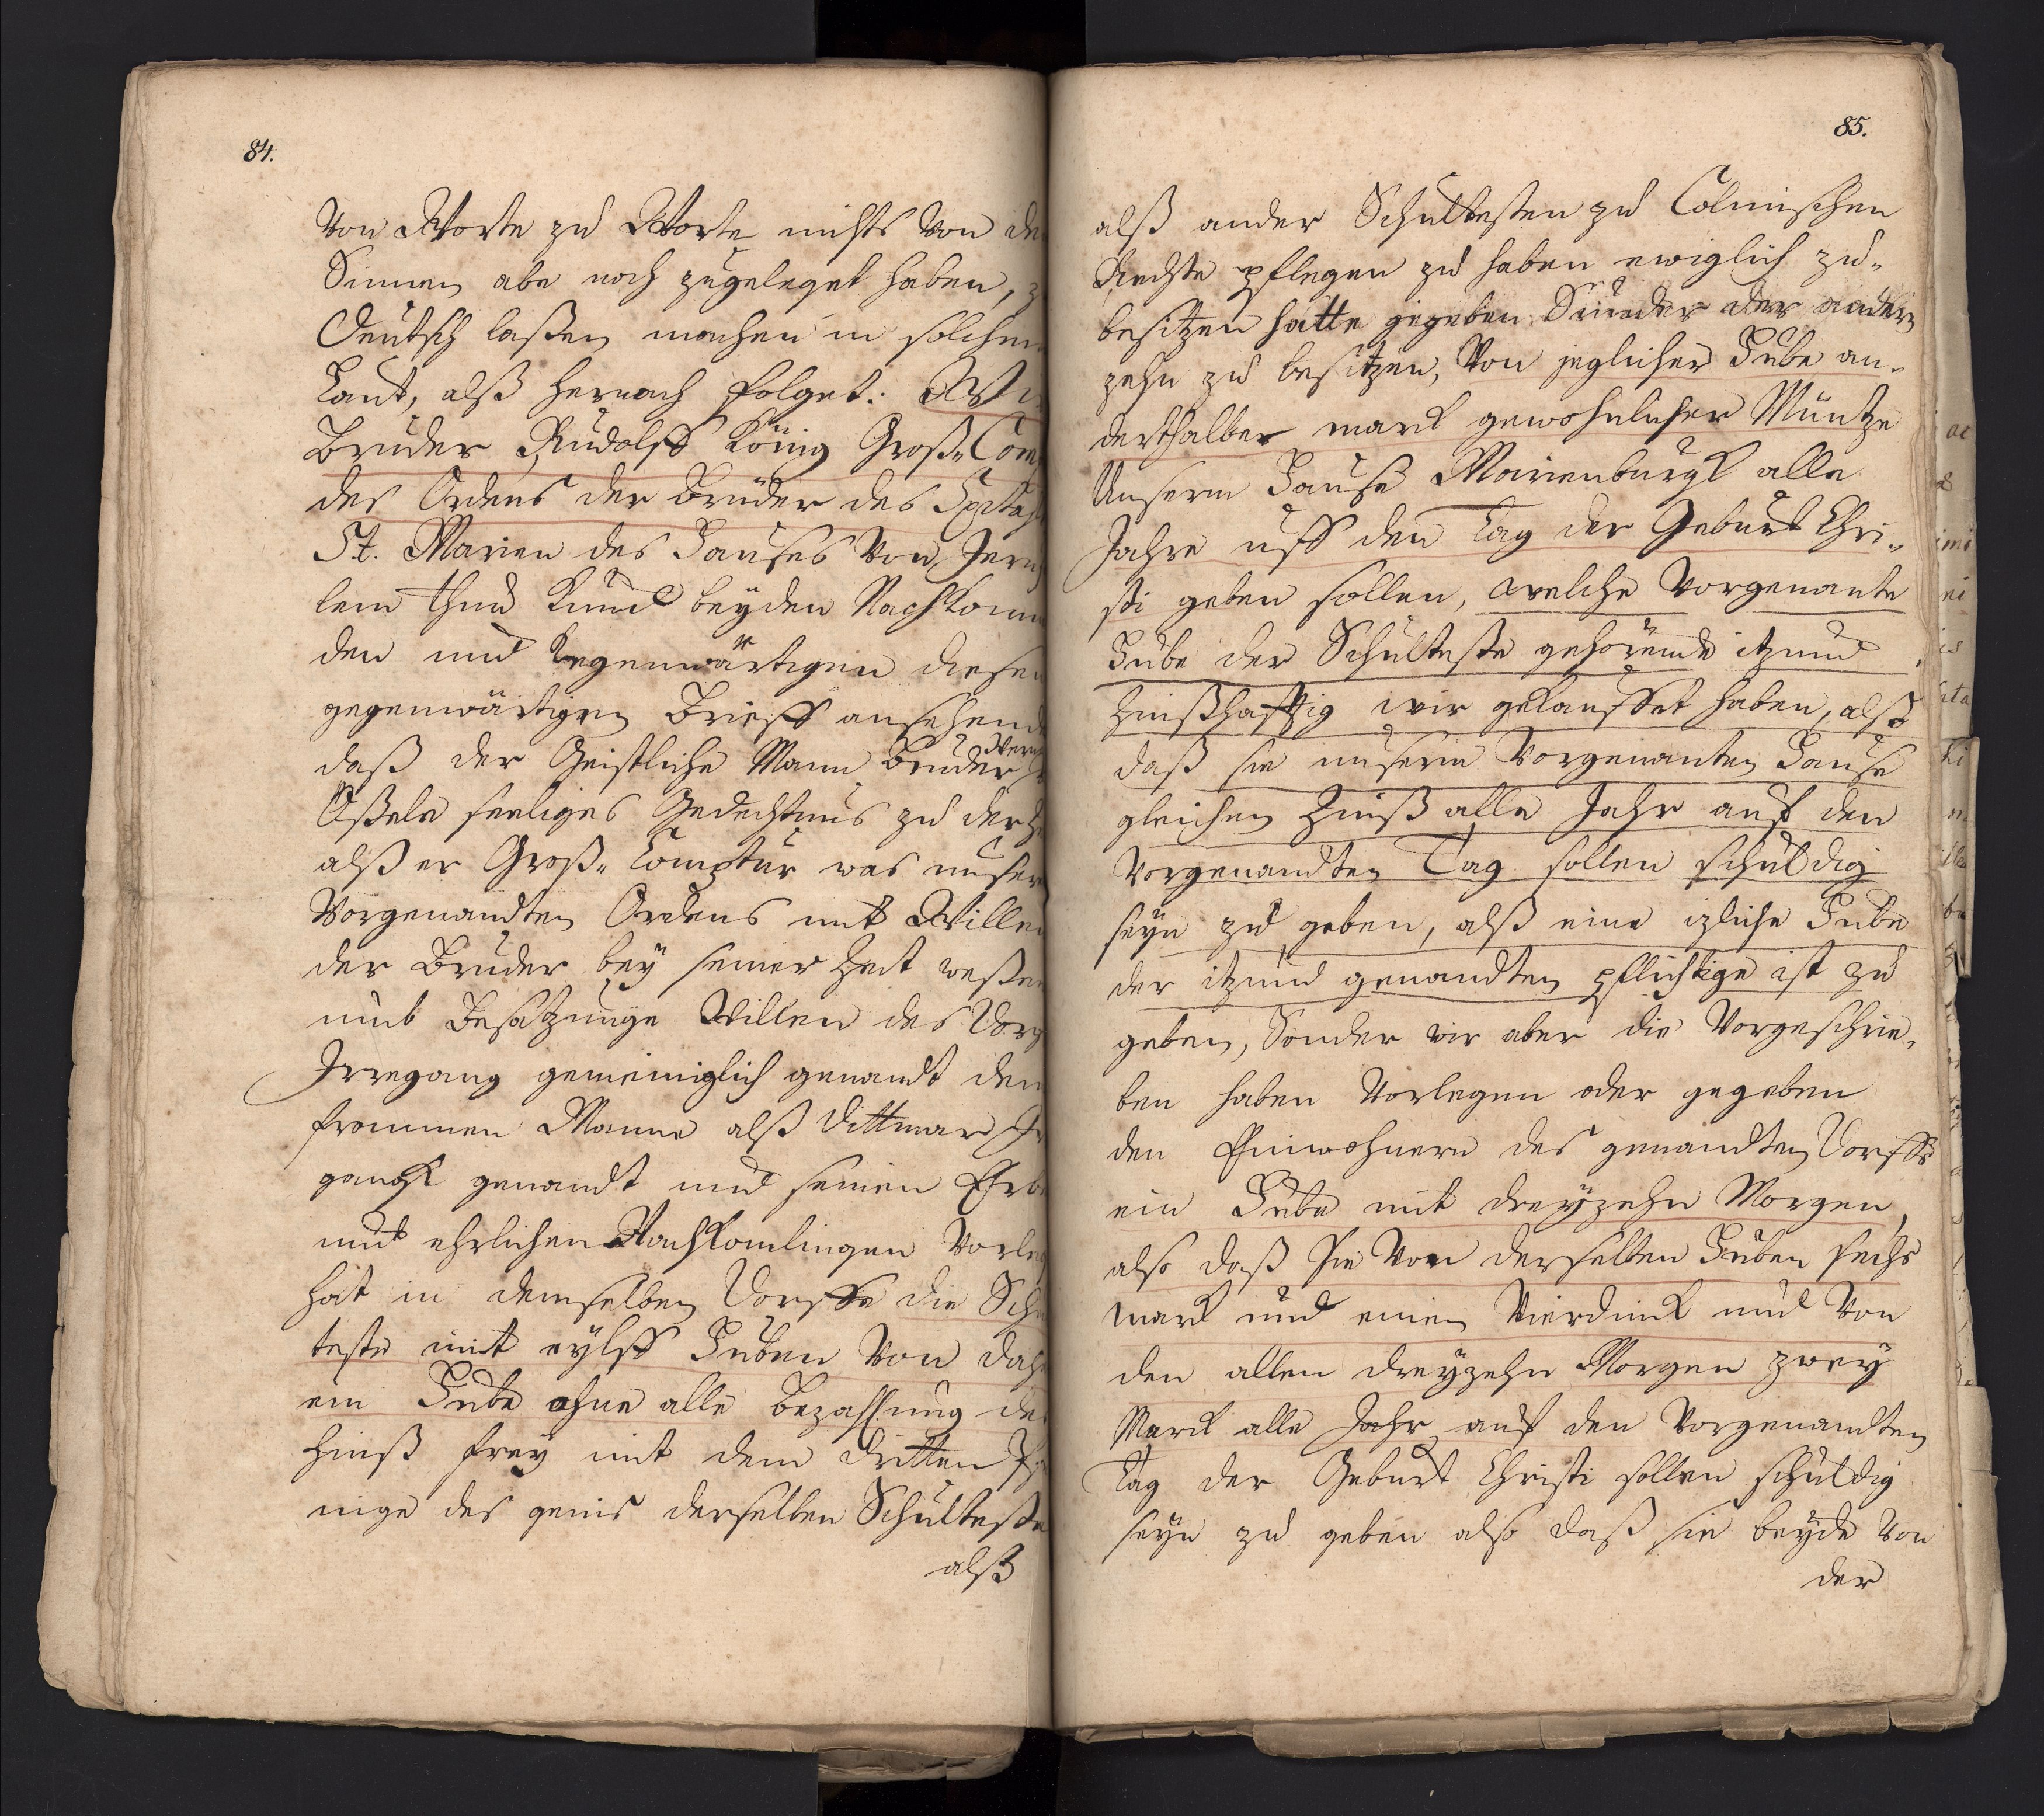 84.
Von Worte zu Worte nichts von de
Sinnen abe noch zugeleget haben, z
Deutsch laßen machen in solchen
Laut, alß hernach folget: Wi
Bruder Rudolff König Groß-Com
des Ordens der Brüder des Spitah
St. Marien des Hauses von Jerus
lem thun Kund beyden Nachkom
den und kegenwärtigen diesen
gegenwärtigen Brieff ansehend
daß der Geistliche Mann Bruder
Oßele seeliges Gedechtnus zu der Z
alß er Groß-Comptur was unser
Vorgenandten Ordens mit Willen
der Bruder bey seiner Zeit weßen
umb Besatzunge Willen des Dorf
Irregang gemeiniglich genandt den
frommen Manne alß Dittmar Ir
gangk genandt und seinen Erb
und ehrlichen Nachkomlingen Vorle
hat in demselben Dorffe die Sch
teste mit eylff Huben von dah
ein Hube ohne alle Bezahlung de
Zinß frey mit dem dritten Pf
nige des genis derselben Schulteße
alß
85.
alß ander Schultesten zu Colmischen
Rechte pflegen zu haben ewiglich zu-
besitzen hatte gegeben Sunder der andern
zehn zu besitzen, Von jeglicher Hube an-
derthalber marck gewohnlicher Müntze
Unserm Hause Marienburgk alle
Jahre uff den Tag der Geburt Chri-
sti geben sollen, welche Vorgenante
Hube der Schulteste gehorende itzund
Zinßhafftig wir gekauffet haben, alß
daß sie unserm Vorgenanten Hause
gleichen Zinß alle Jahr auf den
Vorgenandten Tag sollen schuldig
seyn zu geben, alß eine izliche Hube
der itzund genandten pflichtige ist zu
geben, Sonder wir aber die Vorgeschrie-
ben haben Vorlegen oder gegeben
den Einwohnern des genandten Dorffs
ein Hube mit dreyzehn Morgen,
also daß sie Von derselben Huben sechs
marck und einen Vierdunck und Von
den allen dreyzehn Morgen zwey
Marck alle Jahr auf den Vorgenandten
Tag der Geburt Christi sollen schuldig
seyn zu geben also daß sie beyde Von
der